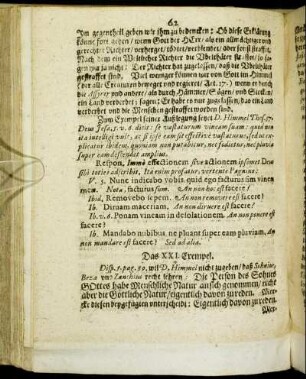 62
Im gegentheil geben wir ihm zu bedencken: Ob diese Erklärung
könne fort gehen / wenn Gott der HErr / als ein allmächtiger und
gerechter Richter / verheeret / tödtet / verblendet / oder sonst straffet.
Nach dem ein Weltlicher Richter die Ubelthäter straffet / so sa-
gen wir ja nicht: Der Richter hat zugelassen / daß die Ubelthäter
gestraffet sind. Viel weniger können wir von Gott im Himmel
der alle Creaturen beweget und regieret / Act. 17. wenn er durch
die Assyrer und andere / als durch Hämmer / Sägen / und Stecken /
ein Land verderbet / sagen: Er habe es nur zugelassen / daß ein Land
verderbet und die Menschen gestraffet worden sind.
Zum Exempel seiner Außlegung setzet D. Himmel Thes. 37.
Deus Jesa. 5. v. 6. dicit: se vastaturum vineam suam: quod non
ita intelligi vult, ac si ipse eam sit
plicatur ibidem, quoniam non putabitur, nec fodietur, nec pluvia
super eam descendet amplius.
Respon. Immò effectionem sive actionem ipsomet Deus
sibi toties adscribit. Ita enim profatur, vertente Pagnino:
V. 5. Nunc indicabo vobis quid ego facturus sim vineæ
meæ. Nota, facturus sum. An non hoc est facere?
Ibid. Removebo sepem. An non removere est facere?
Ib. Diruam maceriam. An non diruere est facere?
Ib. v. 6. Ponam vineam in desolationem. An non ponere est
facere?
Ib. Mandabo nubibus, ne pluant super eam pluviam. An
non mandare est facere? Sed ad alia.
Das XXI. Exempel.
Disp. 5. pag. 50. wil D. Himmel nicht zugeben / daß
Beza und Zanchius recht lehren: Die Person des Sohnes
GOttes habe Menschliche Natur an sich genommen / nicht
aber die Göttliche Natur / eigentlich davon zu reden.
cke diesen beygefügten unterscheid: Eigentlich davon zu reden.